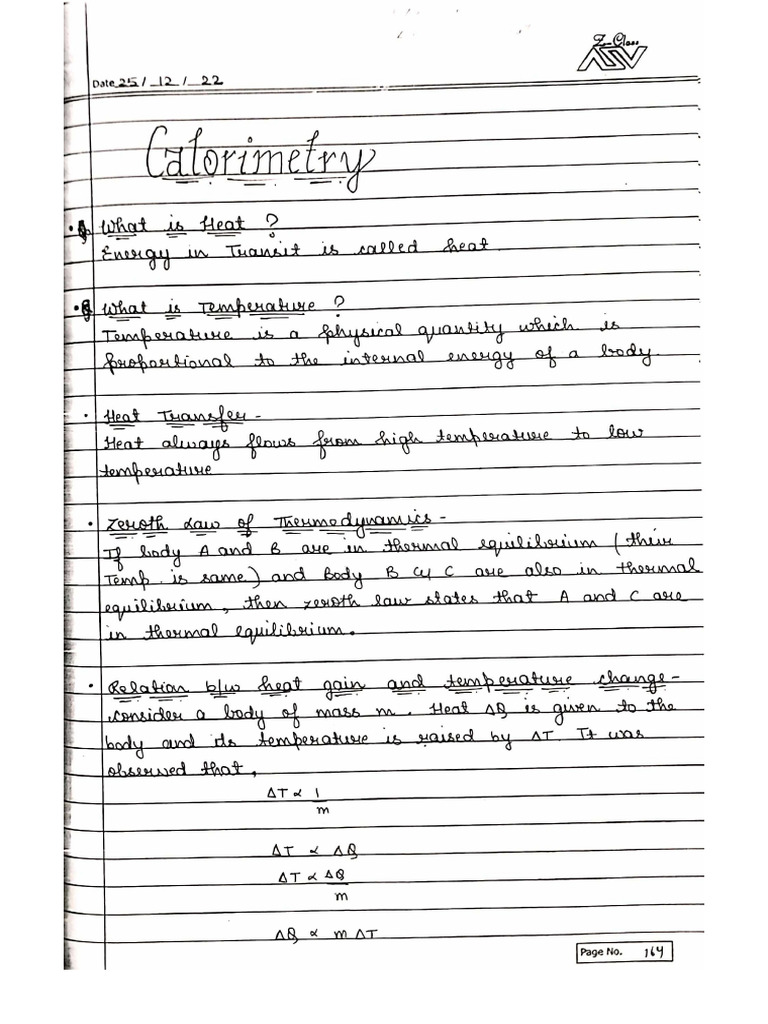 Z-Class
Date 25/ 12 / 22
Calorimetry
• Q What is Heat ?
Energy in Transit is called heat
• Q What is Temperature ?
Temperature is a physical quantity which is
proportional to the internal energy of a body.
• Heat Transfer -
Heat always flows from high temperature to low
temperature
• Zeroth Law of Thermodynamics -
If body A and B are in thermal equilibrium ( their
Temp. is same) and Body B & C are also in thermal
equilibrium, then zeroth law states that A and C are
in thermal equilibrium.
• Relation b/w heat gain and temperature change -
consider a body of mass m. Heat ΔQ is given to the
body and its temperature is raised by ΔT. It was
observed that,
ΔT ∝ 1
m
ΔT ∝ ΔQ
ΔT ∝ ΔQ
m
ΔQ ∝ m ΔT
Page No. 164